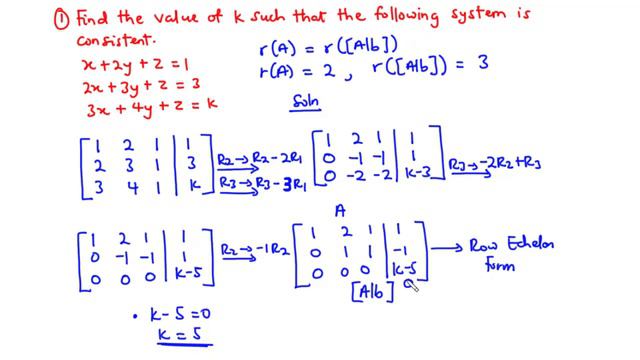 ① Find the value of k such that the following system is
consistent.
x + 2y + z = 1
2x + 3y + z = 3
3x + 4y + z = k
r(A) = r([A|b])
r(A) = 2 , r([A|b]) = 3
Soln
[1 2 1 | 1
2 3 1 | 3
3 4 1 | k]
R2 → R2 - 2R1
R3 → R3 - 3R1
[1 2 1 | 1
0 -1 -1 | 1
0 -2 -2 | k-3]
R3 → -2R2 + R3
[1 2 1 | 1
0 -1 -1 | 1
0 0 0 | k-5]
R2 → -1R2
A
[1 2 1 | 1
0 1 1 | -1
0 0 0 | k-5]
0
[A|b]
→ Row Echelon
form
• k - 5 = 0
k = 5